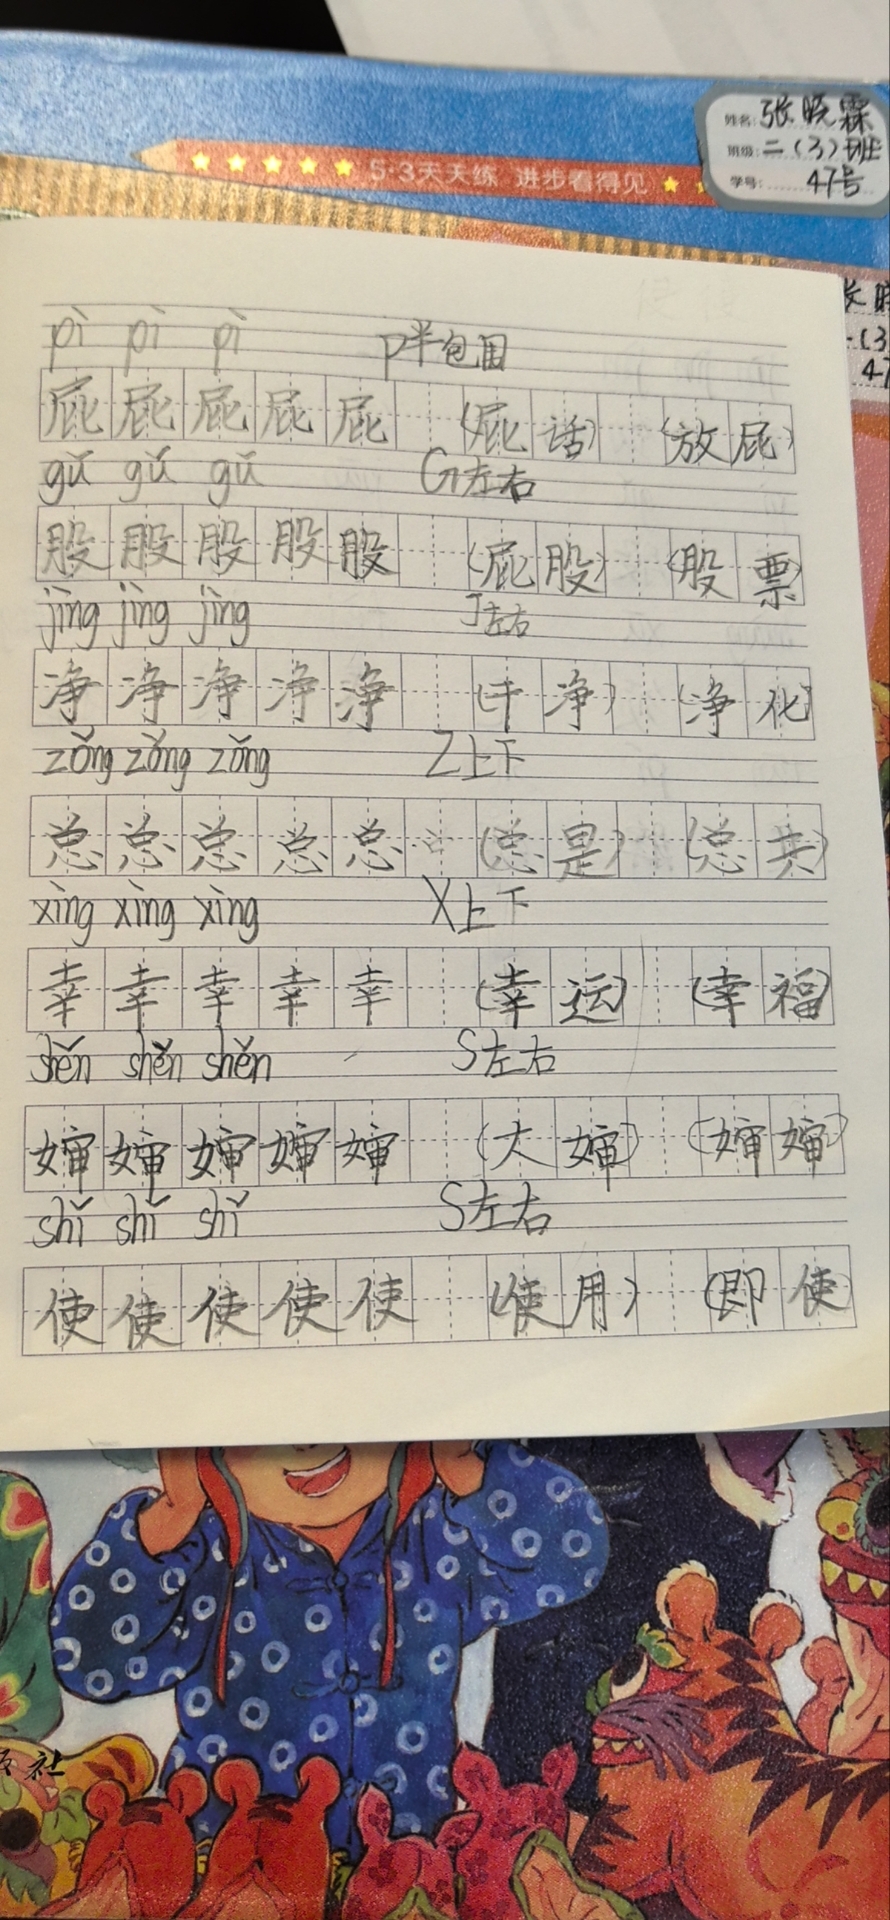 姓名: 张晓霖
班级: 二(3)班
学号: 47号
5·3天天练 进步看得见
张晓
(3
47
pì pì pì P半包围
屁 屁 屁 屁 屁 (屁话) (放屁)
gǔ gǔ gǔ G左右
股 股 股 股 股 (屁股) (股票)
jìng jìng jìng J左右
净 净 净 净 净 (干净) (净化)
zǒng zǒng zǒng Z上下
总 总 总 总 总 (总是) (总共)
xìng xìng xìng X上下
幸 幸 幸 幸 幸 (幸运) (幸福)
shěn shěn shěn S左右
婶 婶 婶 婶 婶 (大婶) (婶婶)
shǐ shǐ shǐ S左右
使 使 使 使 使 (使用) (即使)
版社